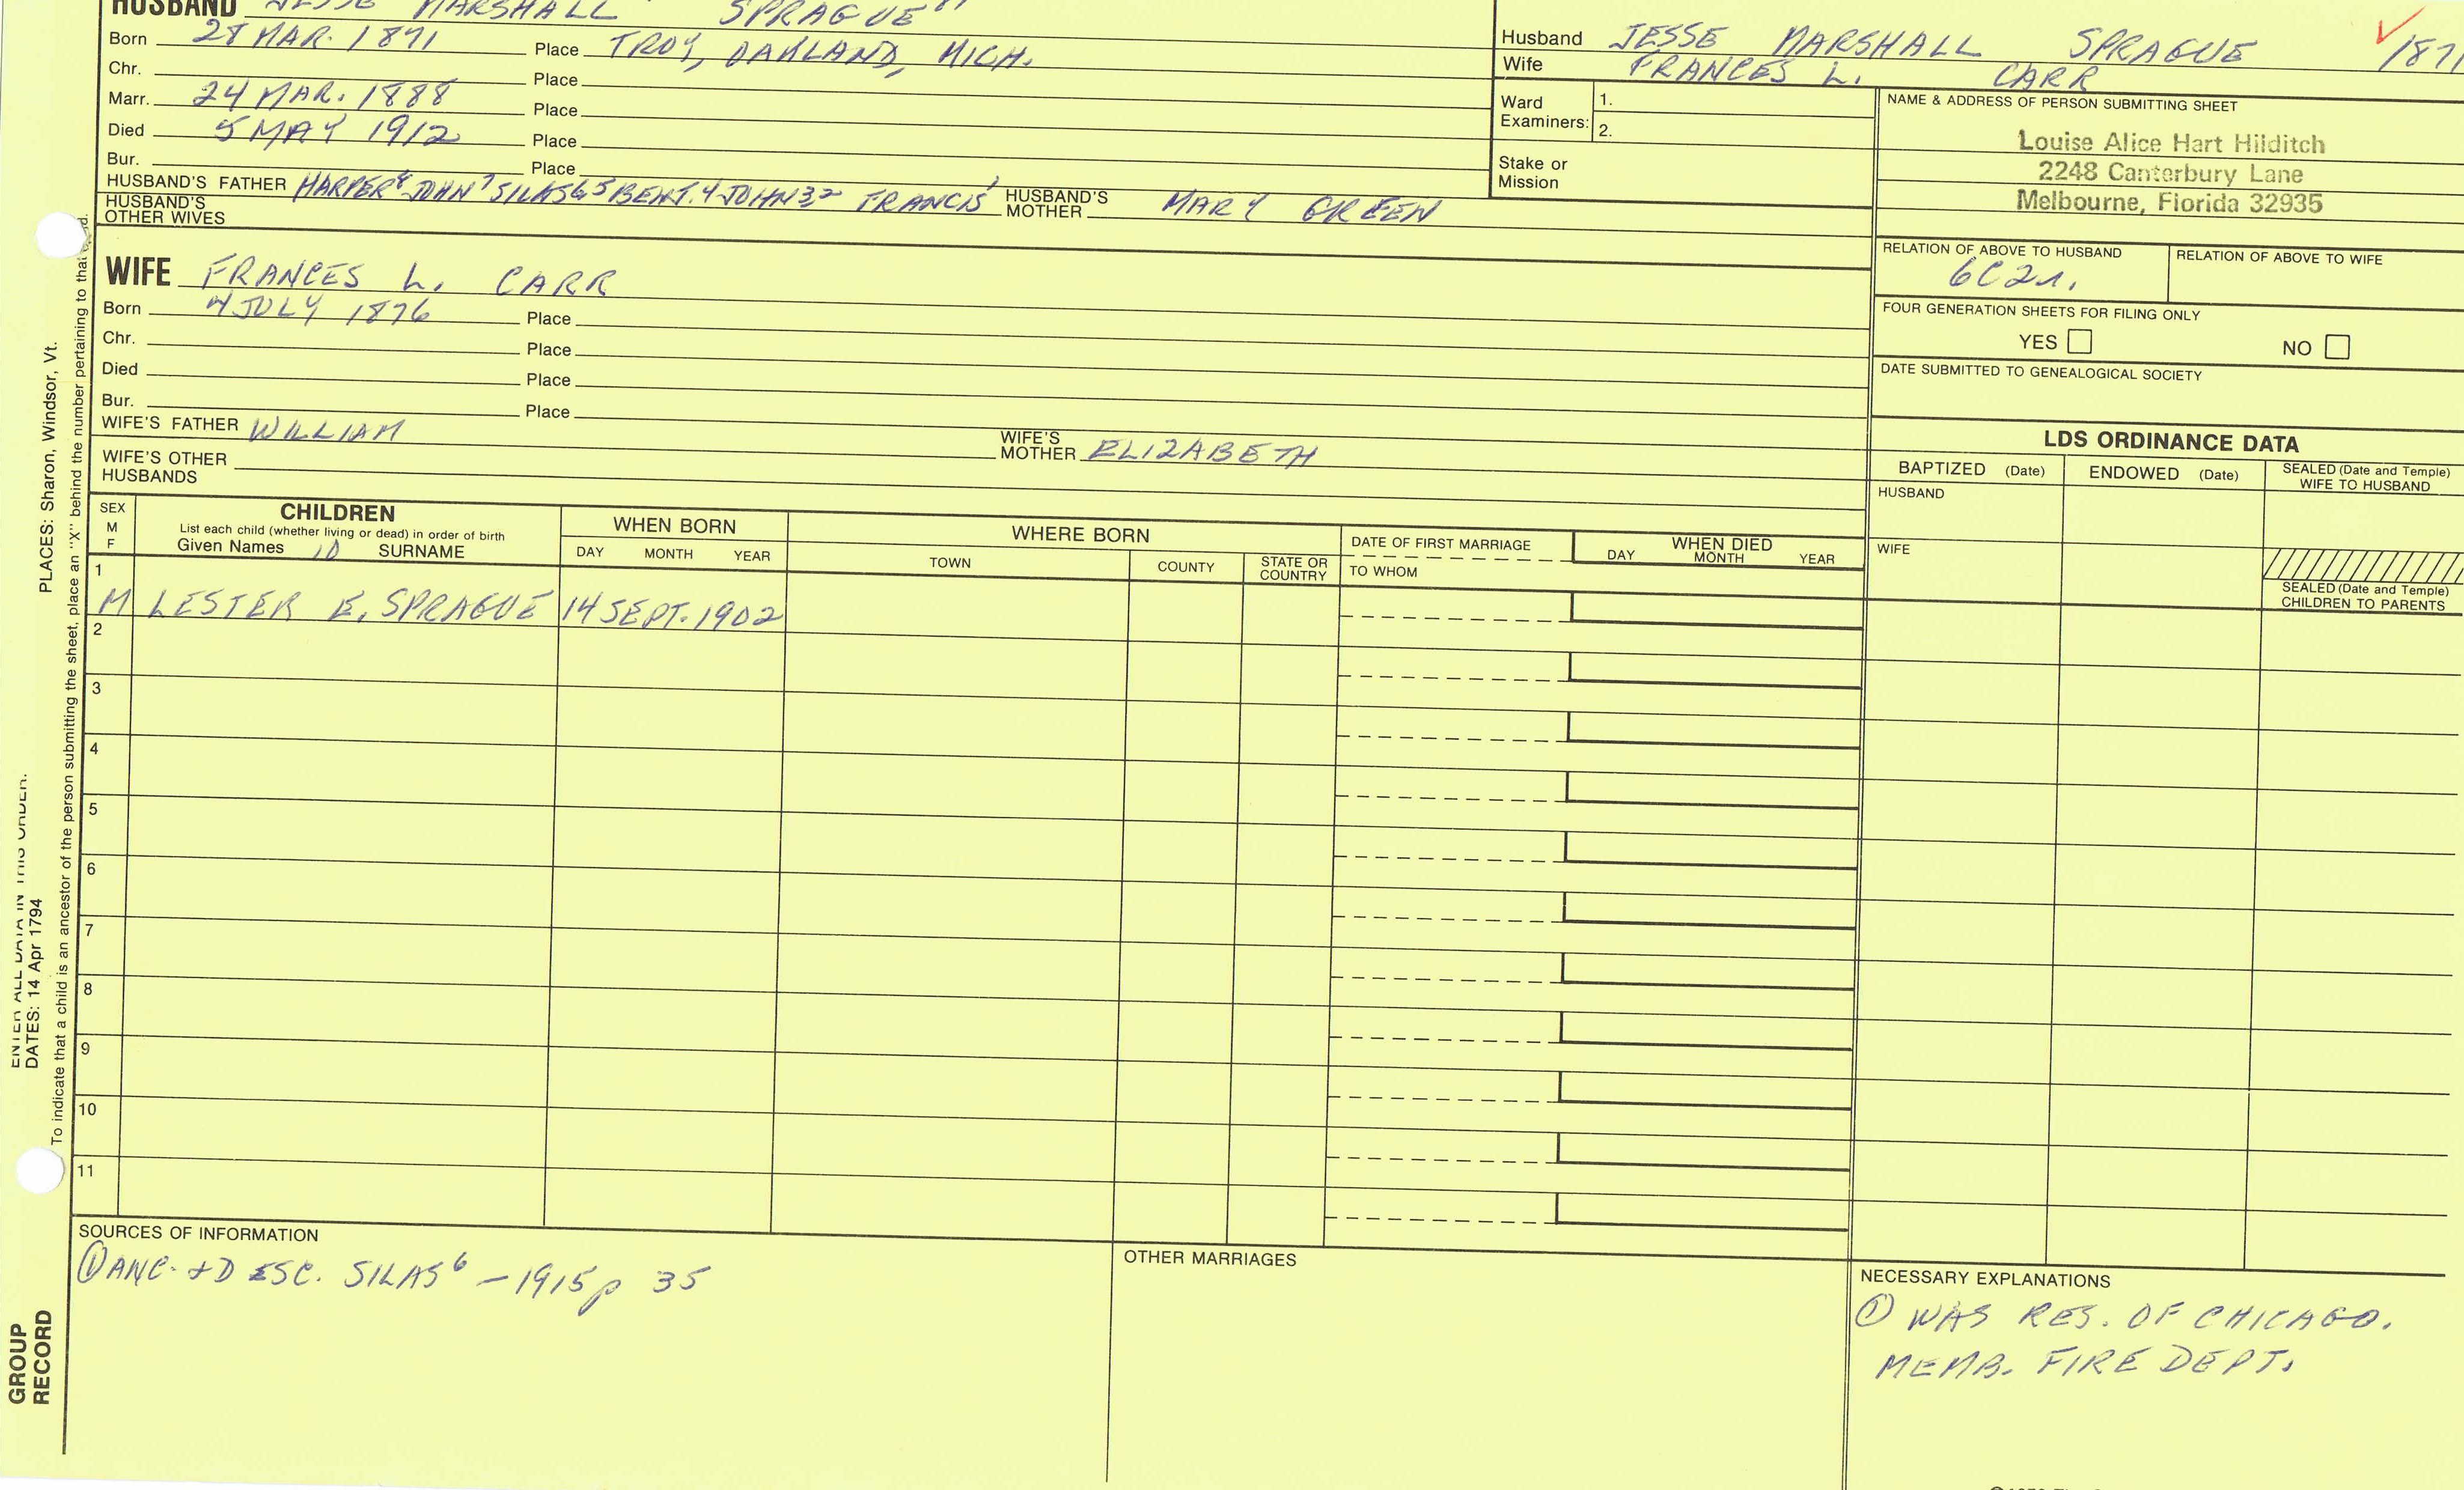 HUSBAND JESSE MARSHALL SPRAGUE
Born 28 MAR. 1871 Place TROY, OAKLAND, MICH.
Chr. Place
Marr. 24 MAR. 1888 Place
Died 5 MAY 1912 Place
Bur. Place
HUSBAND'S FATHER HARPER8 JOHN7 SILAS6 5 BENT.4 JOHN 3 2 FRANCIS1 HUSBAND'S MOTHER MARY GREEN
HUSBAND'S OTHER WIVES
Husband JESSE MARSHALL SPRAGUE ✓ 1871
Wife FRANCES L. CARR
Ward Examiners: 1.
2.
Stake or Mission
NAME & ADDRESS OF PERSON SUBMITTING SHEET
Louise Alice Hart Hilditch
2248 Canterbury Lane
Melbourne, Florida 32935
RELATION OF ABOVE TO HUSBAND RELATION OF ABOVE TO WIFE
6C2r.
FOUR GENERATION SHEETS FOR FILING ONLY
YES NO
DATE SUBMITTED TO GENEALOGICAL SOCIETY
WIFE FRANCES L. CARR
Born 4 JULY 1876 Place
Chr. Place
Died Place
Bur. Place
WIFE'S FATHER WILLIAM WIFE'S MOTHER ELIZABETH
WIFE'S OTHER HUSBANDS
LDS ORDINANCE DATA
BAPTIZED (Date) ENDOWED (Date) SEALED (Date and Temple) WIFE TO HUSBAND
HUSBAND
WIFE
SEALED (Date and Temple) CHILDREN TO PARENTS
SEX M F
CHILDREN
List each child (whether living or dead) in order of birth
Given Names 10 SURNAME
WHEN BORN
DAY MONTH YEAR
WHERE BORN
TOWN COUNTY STATE OR COUNTRY
DATE OF FIRST MARRIAGE
TO WHOM
WHEN DIED
DAY MONTH YEAR
1
M LESTER E. SPRAGUE 14 SEPT. 1902
2
3
4
5
6
7
8
9
10
11
SOURCES OF INFORMATION
① ANC. + DESC. SILAS6 - 1915 p 35
OTHER MARRIAGES
NECESSARY EXPLANATIONS
① WAS RES. OF CHICAGO.
MEMB. FIRE DEPT.
ENTER ALL DATA IN THIS ORDER:
DATES: 14 Apr 1794 PLACES: Sharon, Windsor, Vt.
To indicate that a child is an ancestor of the person submitting the sheet, place an "X" behind the number pertaining to that
GROUP
RECORD